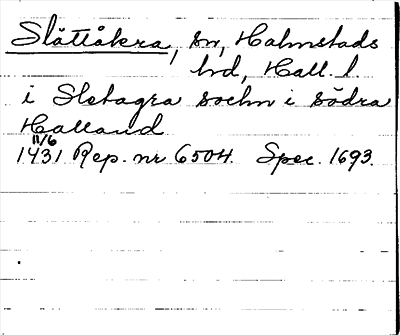 Slättåkra, sn, Halmstads
hd, Hall. l.
i Sletagra sochn i södra
Halland
11/6
1431 Rep. nr 6504. Spec. 1693.